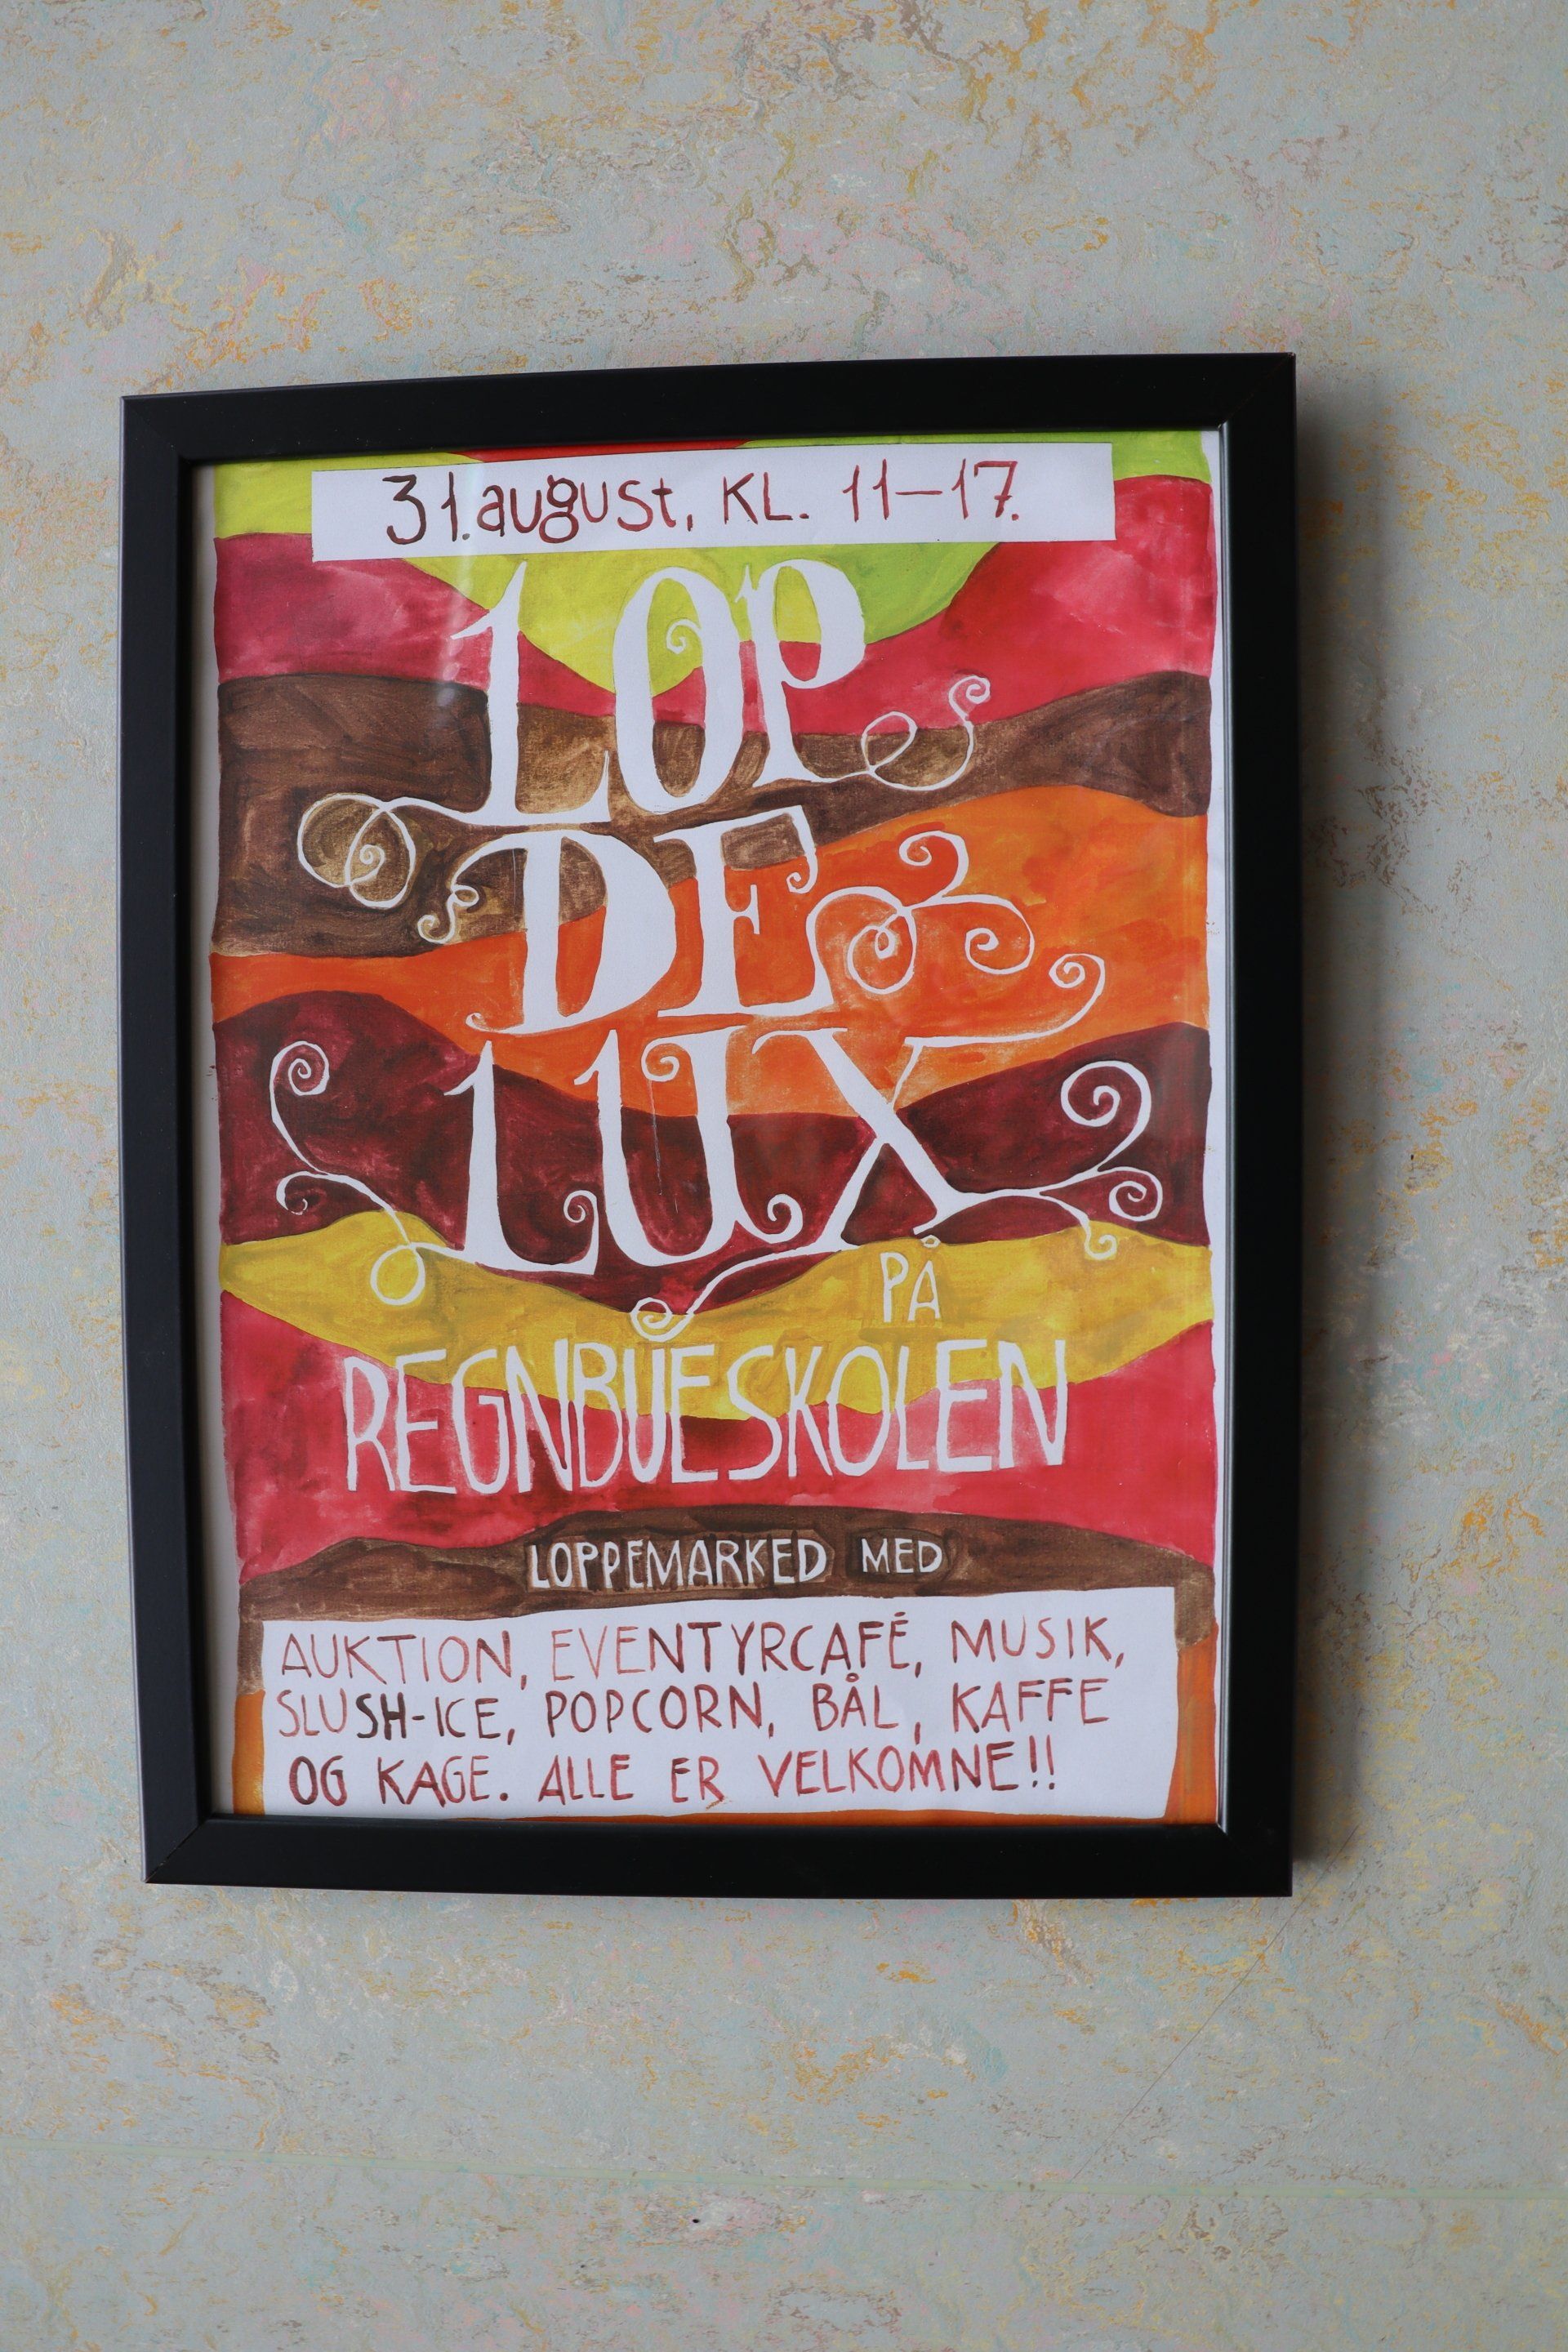 31. august, KL. 11-17.
LOP
DE
LUX
PÅ
REGNBUESKOLEN
LOPPEMARKED MED
AUKTION, EVENTYRCAFÉ, MUSIK,
SLUSH-ICE, POPCORN, BÅL, KAFFE
OG KAGE. ALLE ER VELKOMNE!!